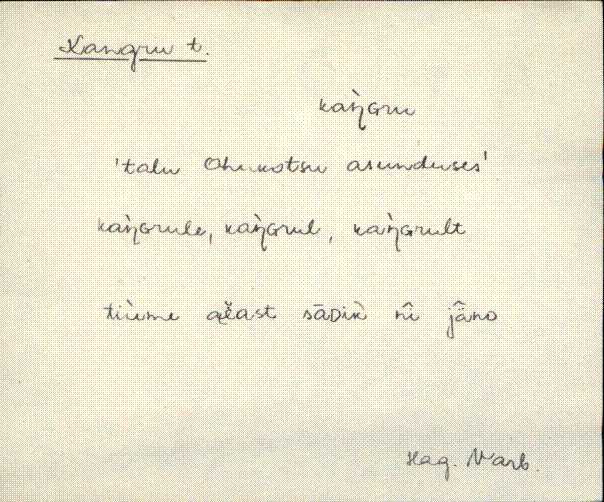 Kangru t.
kaŋ̀gru
'talu Ohukotsu asunduses'
kaŋ̀grule, kaŋ̀grul, kaŋ̀grult
sāDik̀ nî jǟ̂no
Hag. Varb.